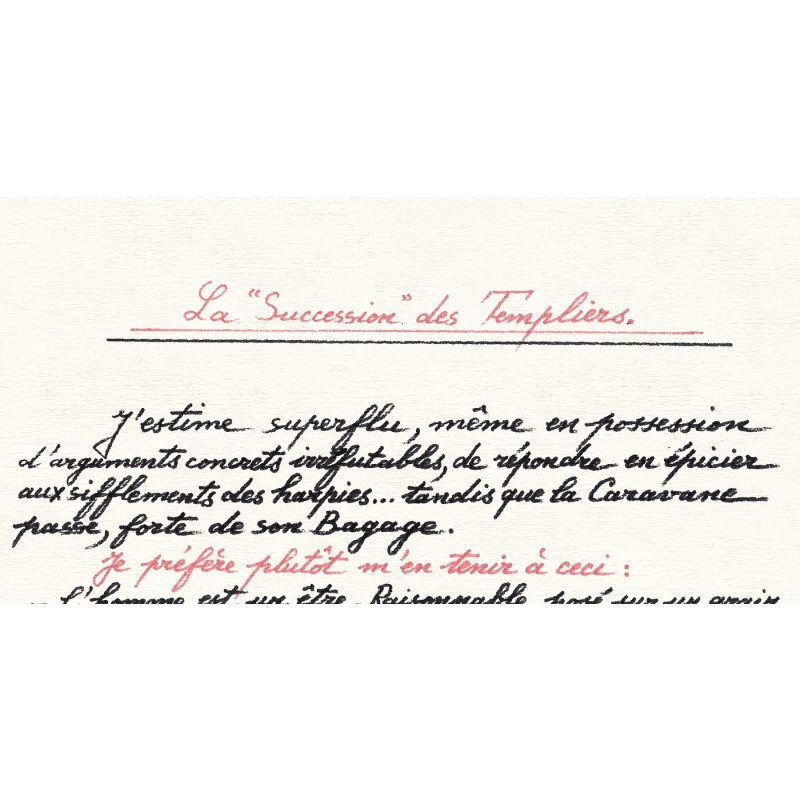 La "Succession" des Templiers.
J'estime superflu, même en possession
d'arguments concrets irréfutables, de répondre en épicier
aux sifflements des harpies... tandis que la Caravane
passe, forte de son Bagage.
Je préfère plutôt m'en tenir à ceci :
l'homme est un être Raisonnable posé sur un grain